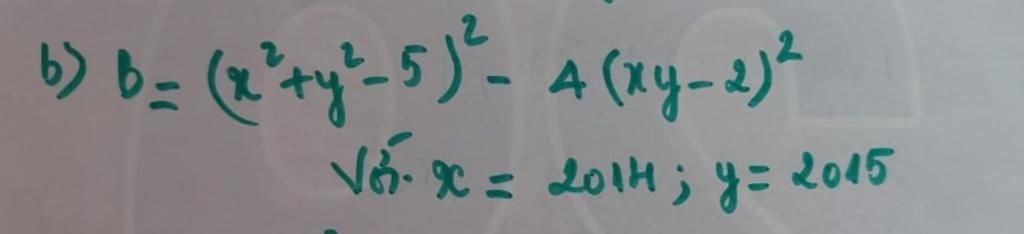 b) B = (x² + y² - 5)² - 4 (xy - 2)²
với x = 2014 ; y = 2015